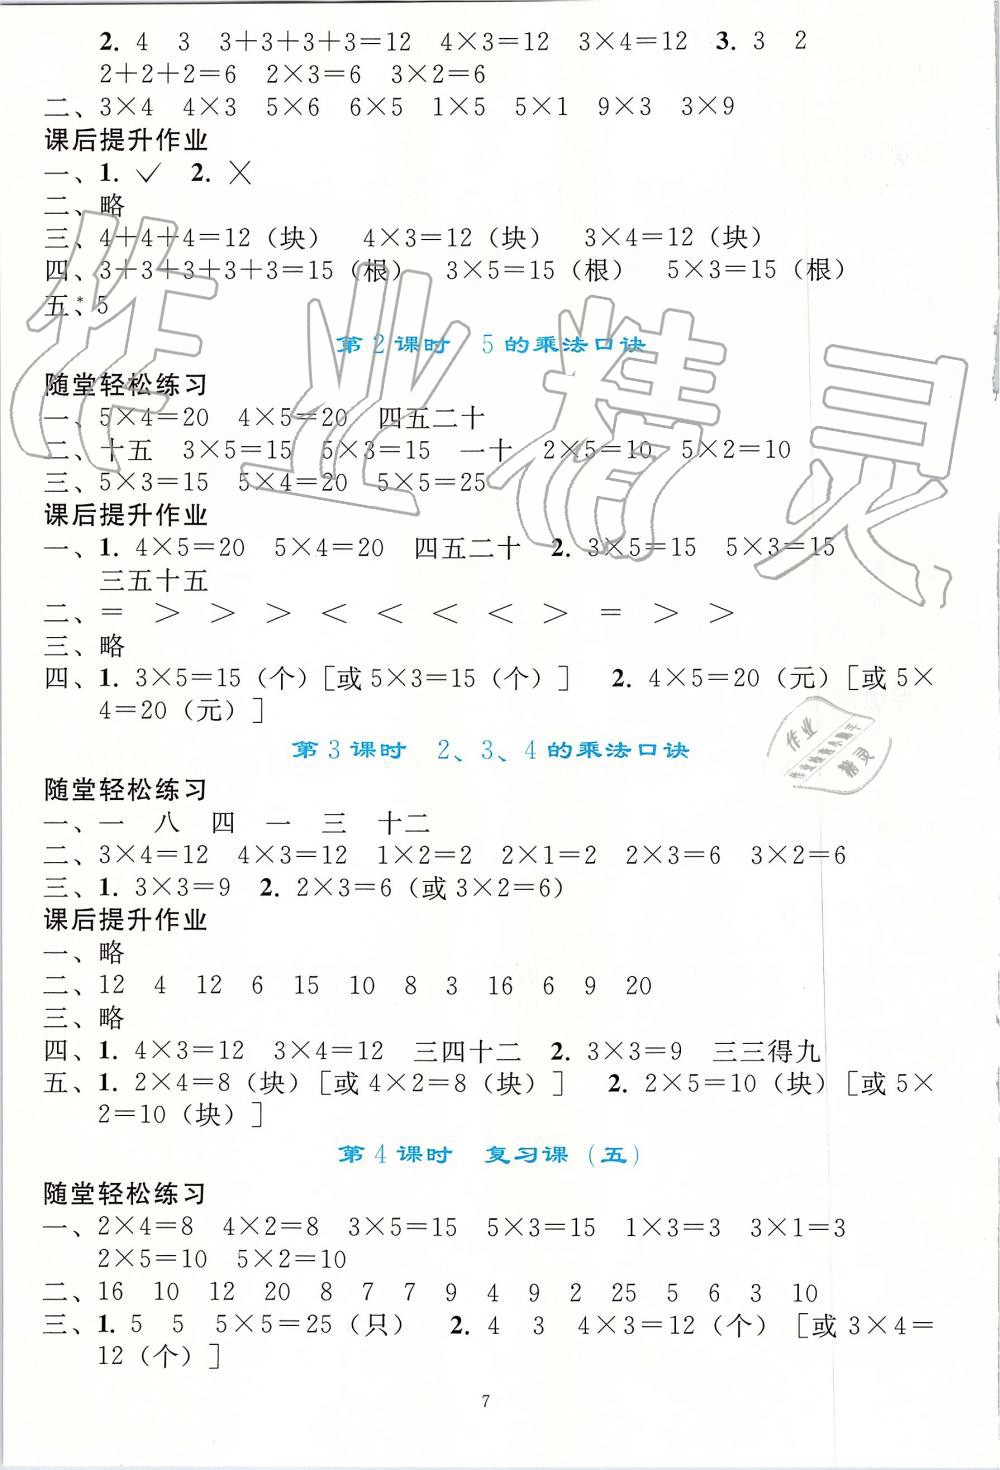 2. 4 3 3+3+3+3=12 4×3=12 3×4=12 3. 3 2
2+2+2=6 2×3=6 3×2=6
二、3×4 4×3 5×6 6×5 1×5 5×1 9×3 3×9
课后提升作业
一、1. ✓ 2. ╳
二、略
三、4+4+4=12（块） 4×3=12（块） 3×4=12（块）
四、3+3+3+3+3=15（根） 3×5=15（根） 5×3=15（根）
五*、5
第2课时 5的乘法口诀
随堂轻松练习
一、5×4=20 4×5=20 四五二十
二、十五 3×5=15 5×3=15 一十 2×5=10 5×2=10
三、5×3=15 5×4=20 5×5=25
课后提升作业
一、1. 4×5=20 5×4=20 四五二十 2. 3×5=15 5×3=15
三五十五
二、= > > > < < < < > = > >
三、略
四、1. 3×5=15（个）[或5×3=15（个）] 2. 4×5=20（元）[或5×
4=20（元）]
第3课时 2、3、4的乘法口诀
随堂轻松练习
一、一 八 四 一 三 十二
二、3×4=12 4×3=12 1×2=2 2×1=2 2×3=6 3×2=6
三、1. 3×3=9 2. 2×3=6（或3×2=6）
课后提升作业
一、略
二、12 4 12 6 15 10 8 3 16 6 9 20
三、略
四、1. 4×3=12 3×4=12 三四十二 2. 3×3=9 三三得九
五、1. 2×4=8（块）[或4×2=8（块）] 2. 2×5=10（块）[或5×
2=10（块）]
第4课时 复习课（五）
随堂轻松练习
一、2×4=8 4×2=8 3×5=15 5×3=15 1×3=3 3×1=3
2×5=10 5×2=10
二、16 10 12 20 8 7 7 9 4 9 2 25 5 6 3 10
三、1. 5 5 5×5=25（只） 2. 4 3 4×3=12（个）[或3×4=
12（个）]
7
作业精灵
作业
精灵